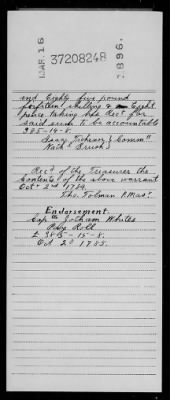 MAR. 16
37208248
1896.
and Eighty five pound
fourteen shilling & Eight
pence taking his Rect for
said sum to be accountable
385-14-8.
Isaac Tichenor } Commtt
Nathl Brush }
Recd of the Treasurer the
Contents of the above warrant
Octr 2nd 1784
Tho. Tolman P.Mast
Endorsement.
Captn Jotham Whites
Pay Roll
£ 385-15-8.
Oct 2d 1785.